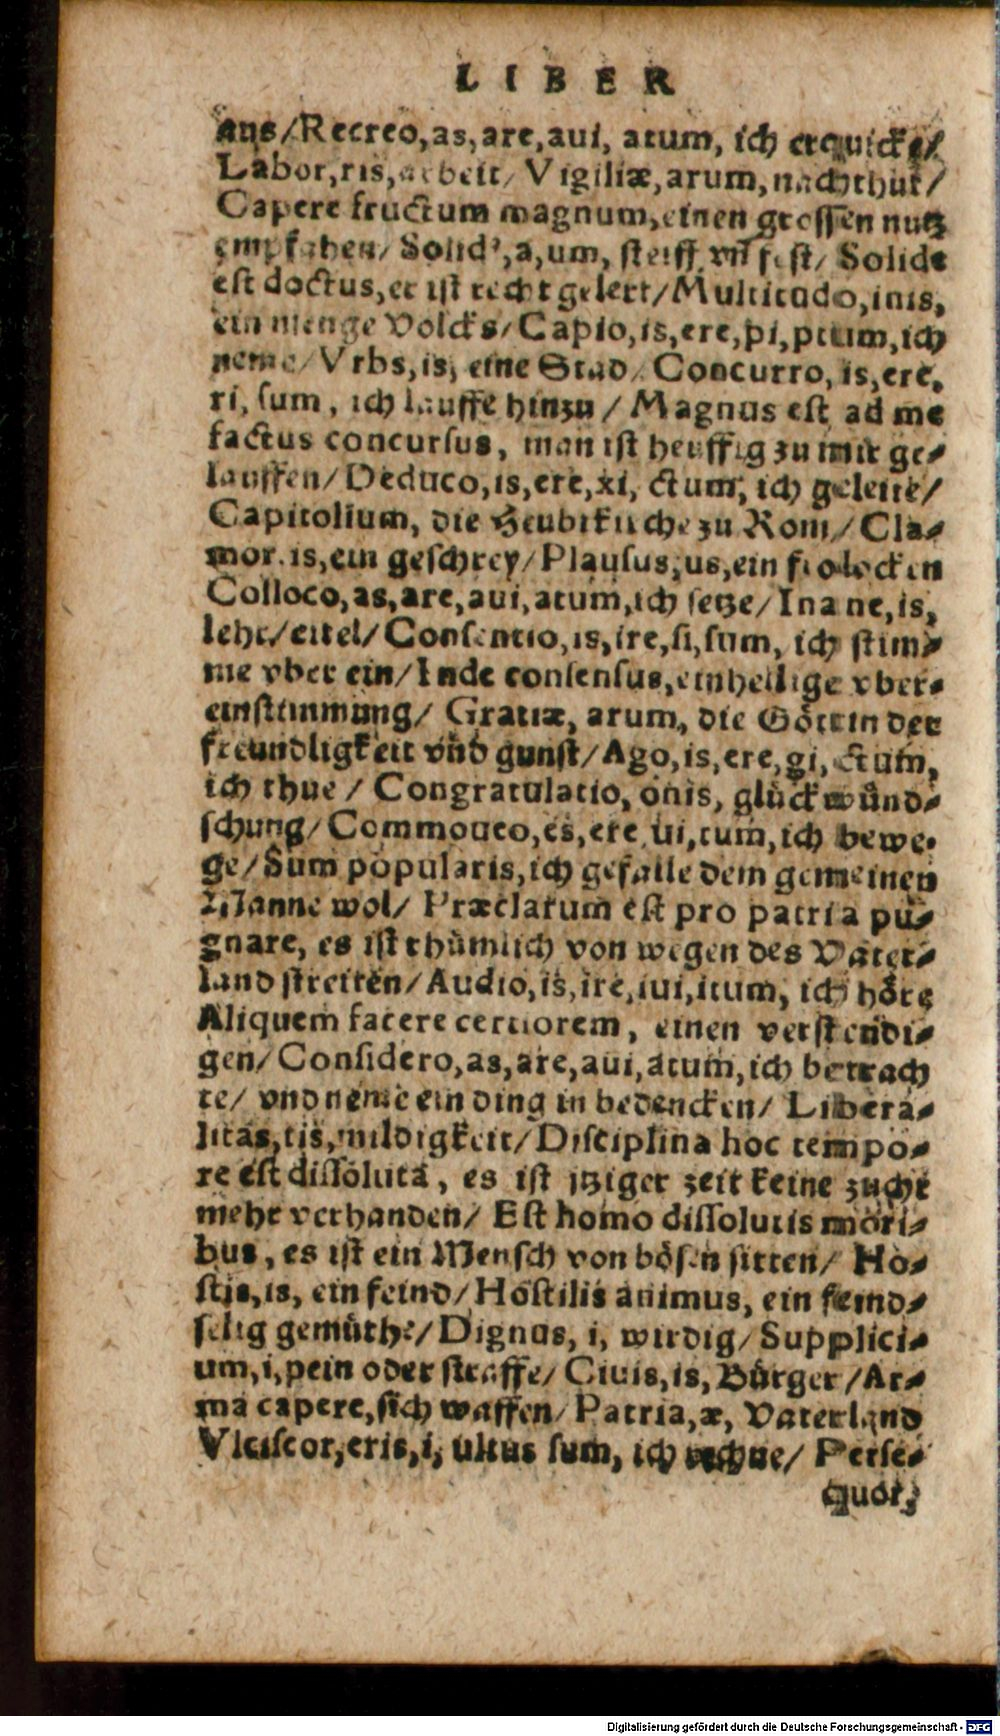 LIBER
aus/Recreo,as,are,aui, atum, ich erquicke/
Labor,ris,arbeit/ Vigiliæ,arum,nachthut/
Capere fructum magnum,einen grossen nutz
empfahen/ Solid⁹,a,um, steiff vñ fest/ Solide
est doctus,er ist recht gelert/Multitudo,inis,
ein menge Volcks/Capio,is,ere,pi,ptum,ich
neme/Vrbs,is, eine Stad/ Concurro,is,ere,
ri,sum, ich lauffe hinzu/Magnus est ad me
factus concursus, man ist heuffig zu mir ge-
lauffen/Deduco,is,ere,xi, ctum, ich geleite/
Capitolium, die Heubtkirche zu Rom/Cla-
mor.is,ein geschrey/Plausus,us,ein frolocken
Colloco,as,are,aui,atum,ich setze/Inane,is,
lehr/eitel/Consentio,is,ire,si,sum, ich stim-
me vber ein/Inde consensus,einhellige vber-
einstimmung/ Gratiæ, arum, die Göttin der
freundligkeit vnd gunst/Ago,is,ere,gi,ctum,
ich thue/ Congratulatio, onis, glückwünd-
schung/Commoueo,es,ere,ui,tum,ich bewe-
ge/Sum popularis,ich gefalle dem gemeinen
Manne wol/ Præclarum est pro patria pu-
gnare, es ist rhümlich von wegen des Vater-
land streiten/Audio,is,ire,iui,itum, ich höre
Aliquem facere certiorem, einen verstendi-
gen/Considero,as,are,aui,atum,ich betrach
te/ vnd neme ein ding in bedencken/ Libera-
litas,tis,mildigkeit/Disciplina hoc tempo-
re est dissoluta, es ist jtziger zeit keine zucht
mehr verhanden/ Est homo dissolutis mori-
bus, es ist ein Mensch von bösen sitten/ Ho-
stis,is, ein feind/Hostilis animus, ein feind-
selig gemüthe/Dignus, i, wirdig/Supplici-
um,i,pein oder straffe/Ciuis,is,Bürger/Ar-
ma capere,sich waffen/Patria,æ, Vaterland
Vlciscor,eris,i, ultus sum, ich reche/ Perse-
quor,
Digitalisierung gefördert durch die Deutsche Forschungsgemeinschaft - DFG